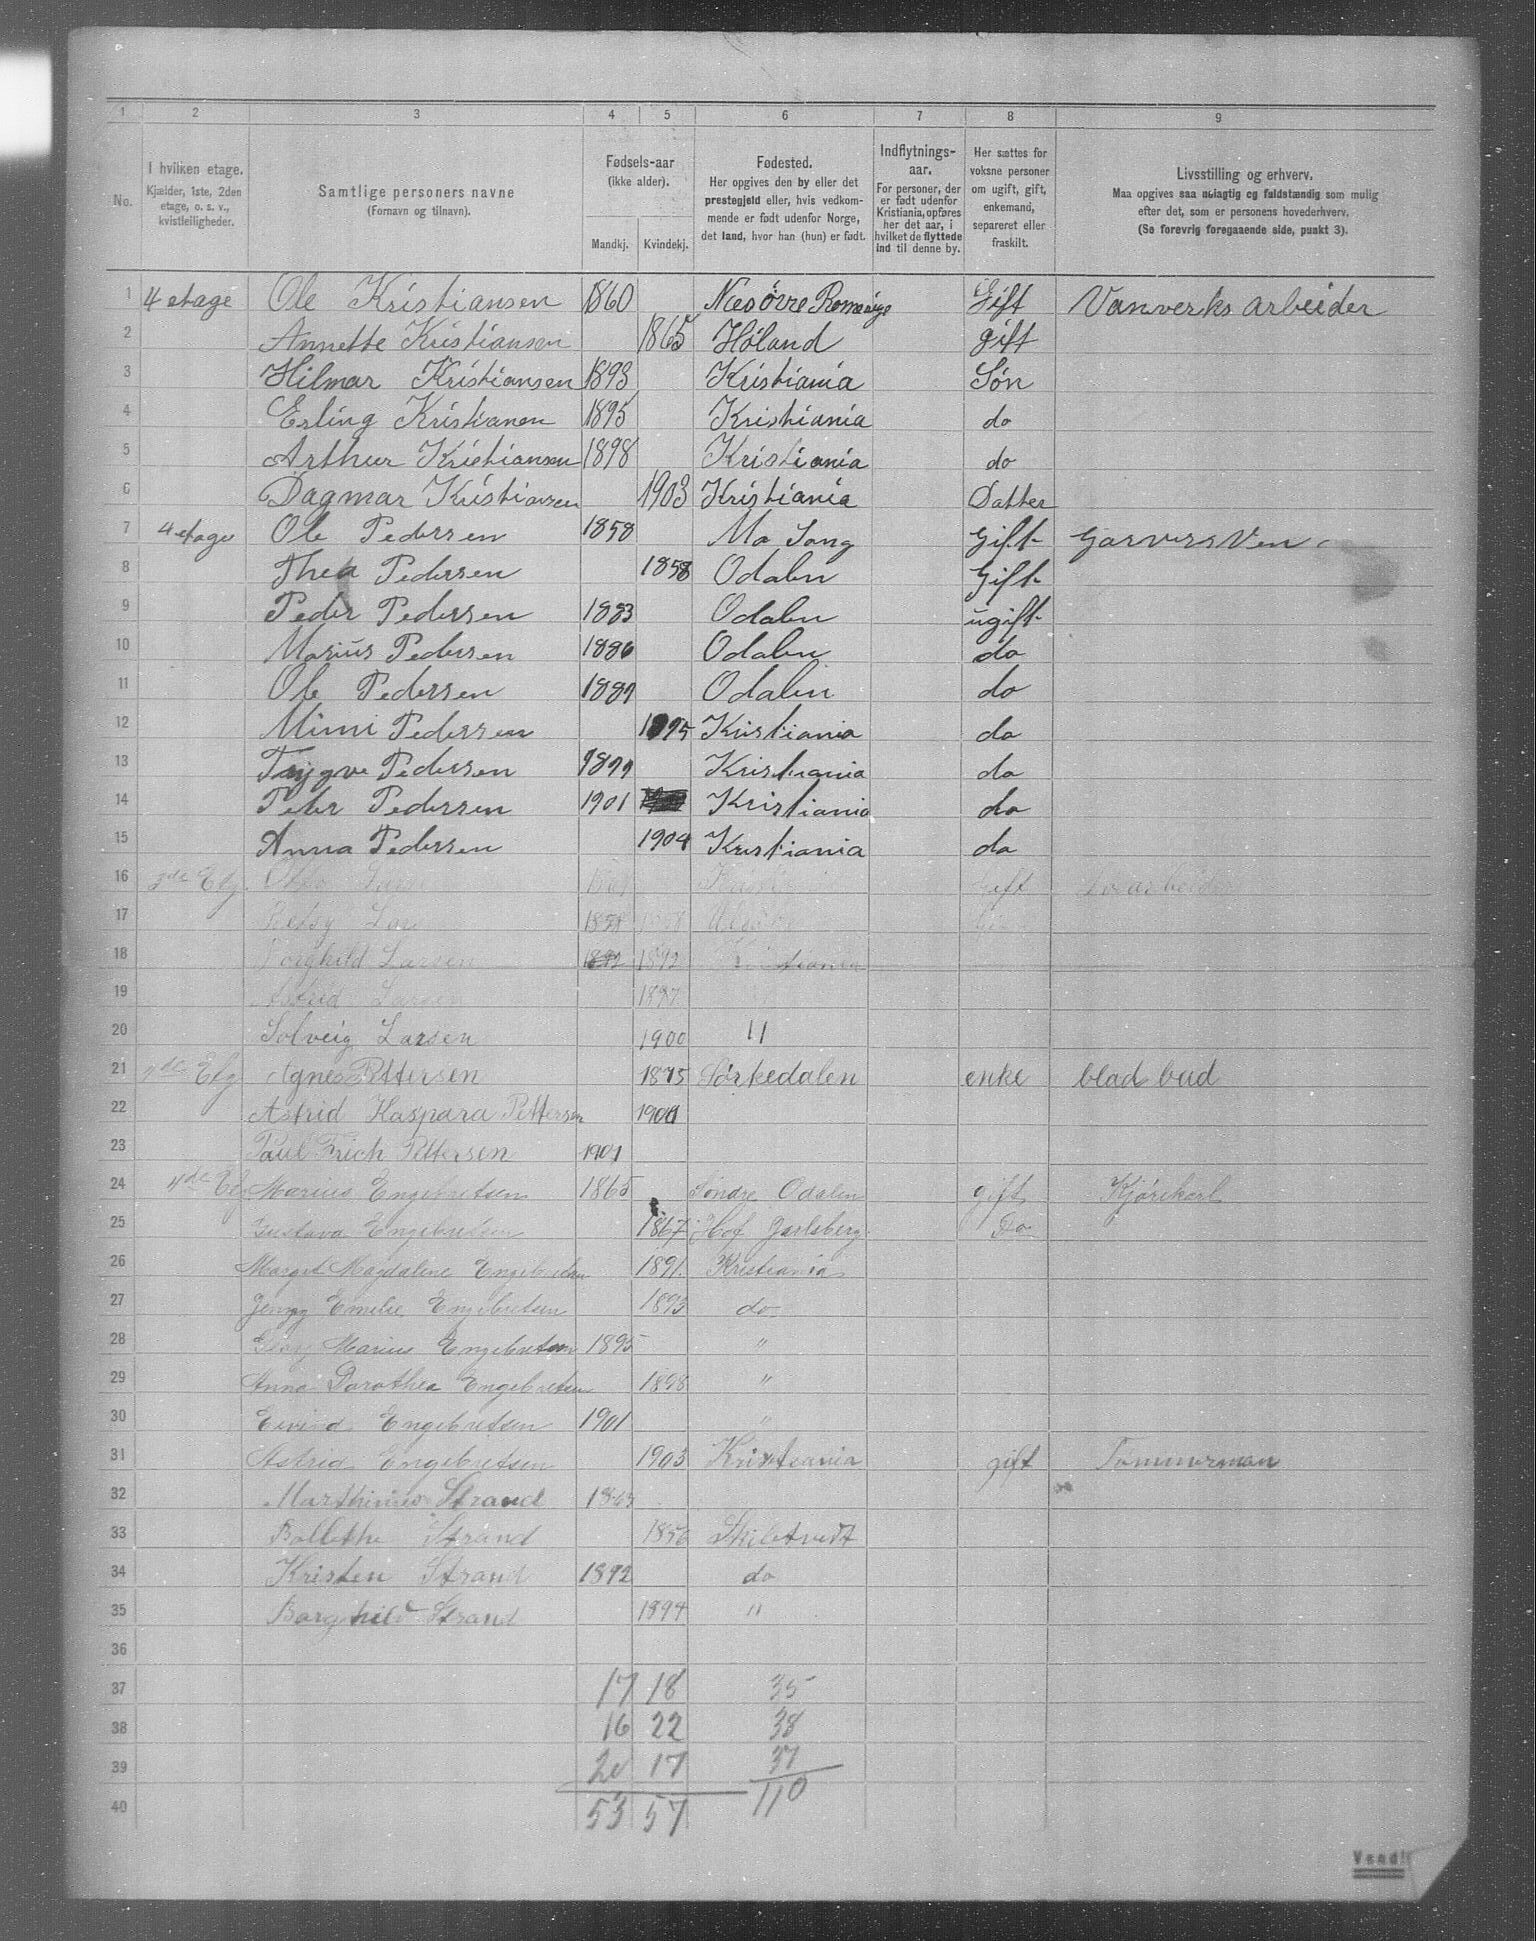 1 2 3 4 5 6 7 8 9
No.
I hvilken etage.
Kjælder, 1ste, 2den
etage, o. s. v.,
kvistleiligheder.
Samtlige personers navne
(Fornavn og tilnavn).
Fødsels-aar
(ikke alder).
Mandkj. Kvindekj.
Fødested.
Her opgives den by eller det
prestegjeld eller, hvis vedkom-
mende er født udenfor Norge,
det land, hvor han (hun) er født.
Indflytnings-
aar.
For personer, der
er født udenfor
Kristiania, opføres
her det aar, i
hvilket de flyttede
ind til denne by.
Her sættes for
voksne personer
om ugift, gift,
enkemand,
separeret eller
fraskilt.
Livsstilling og erhverv.
Maa opgives saa nøiagtig og fuldstændig som mulig
efter det, som er personens hovederhverv.
(Se forøvrig foregaaende side, punkt 3).
1 4 etage Ole Kristiansen 1860 Næs øvre Gift Vanverks arbeider
2 Annette Kristiansen 1865 Høland gift
3 Hilmar Kristiansen 1893 Kristiania Søn
4 Erling Kristianen 1895 Kristiania do
5 Arthur Kristiansen 1898 Kristiania do
6 Dagmar Kristiansen 1903 Kristiania Datter
7 4 etage Ole Pedersen 1858 Mo Gift
8 Thea Pedersen 1858 Odalen Gift
9 Peder Pedersen 1883 Odalen ugift
10 Marius Pedersen 1886 Odalen do
11 Ole Pedersen Odalen do
12 Mimi Pedersen 1895 Kristiania do
13 Trygve Pedersen 1899 Kristiania do
14 Peter Pedersen 1901 Kristiania do
15 Anna Pedersen 1904 Kristiania do
16 Etg. Gift
17 Betsy 1858
18 Borghild Larsen 1892 1892 Kristiania
19 Astrid Larsen 1897
20 Solveig Larsen 1900 11
21 Etg Agnes Pettersen 1875 Sørkedalen enke blad bud
22 Astrid Kaspara Pettersen 1900
23 Paul Erich Pettersen 1901
24 Marius Engebretsen 1865 Søndre Odalen gift Kjørekarl
25 Gustava Engebretsen 1867 Hof Jarlsberg Do
26 Margit Magdalene Engebretsen 1891. Kristiania
27 Jenny Emilie Engebretsen 1893 do
28 Georg Marius Engebretsen 1895 "
29 Anna Dorothea Engebretsen 1898 "
30 Eivind Engebretsen 1901 "
31 Astrid Engebretsen 1903 Kristiania gift Tømmerman
32 Marthinus Strand
33 Bolethe Strand 1856 Skibtvedt
34 Kristen Strand 1892 do
35 Borghild Strand 1894 "
36
37 17 18 35
38 16 22 38
39 20 17 37
40 53 57 110
Vend!